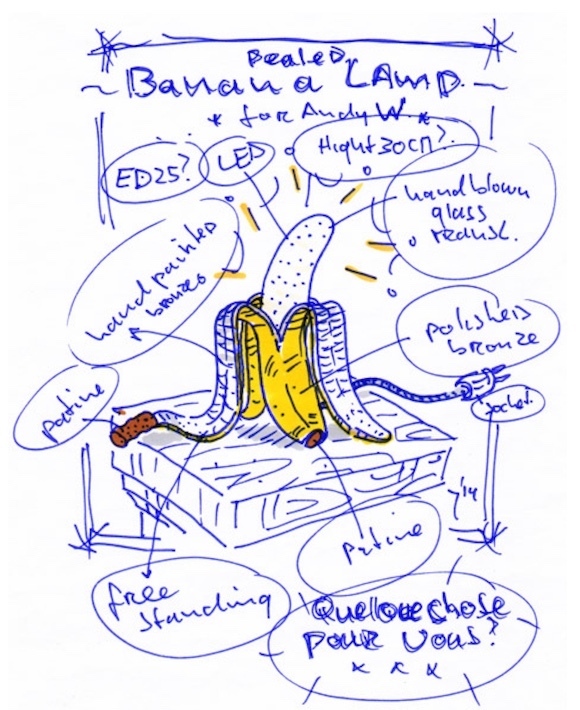 Pealed
~ Banana LAmp. ~
* for Andy W. *
ED25?
LED
Hight 30cm?
handblown
glass
hand painted
bronzes
polished
bronze
patine
socket
'14
patine
free
standing
Quelque chose
pour vous?
* * *